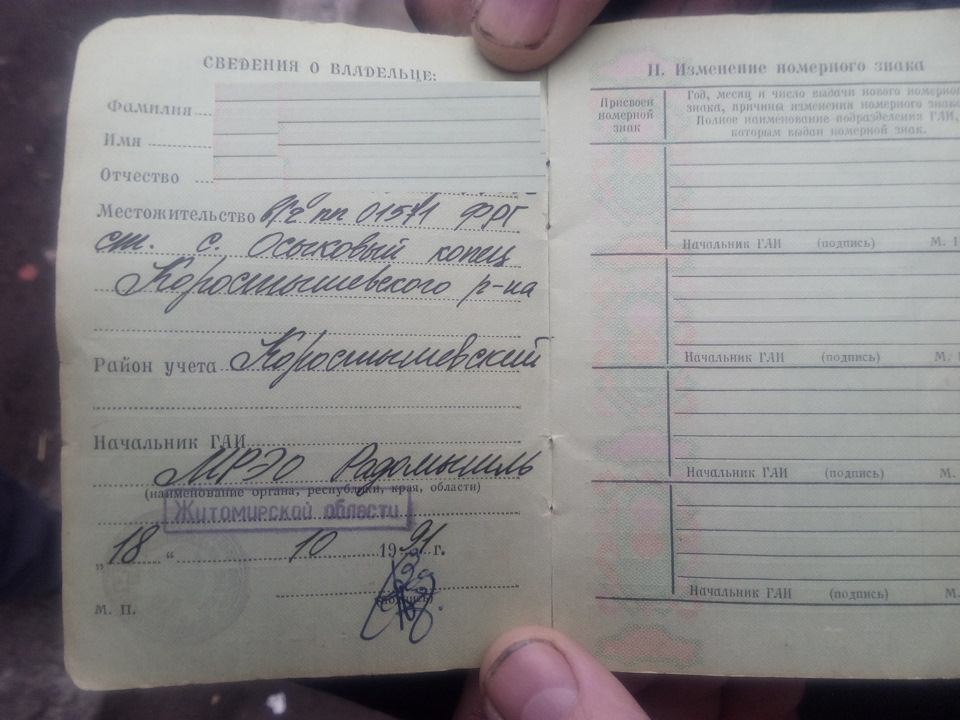 СВЕДЕНИЯ О ВЛАДЕЛЬЦЕ:
Фамилия
Имя
Отчество
Местожительство в/ч пп 01571 ФРГ
ст. с. Осыковый копец
Коростышевского р-на
Район учета Коростышевский
Начальник ГАИ
МРЭО Радомышль
(наименование органа, республики, края, области)
Житомирской области
„18“ 10 1991 г.
(подпись)
М. П.
II. Изменение номерного знака
Присвоен
номерной
знак
Год, месяц и число выдачи нового номерног
знака, причины изменения номерного знака
Полное наименование подразделения ГАИ,
которым выдан номерной знак.
Начальник ГАИ (подпись) М.
Начальник ГАИ (подпись) М.
Начальник ГАИ (подпись) М.
Начальник ГАИ (подпись) М.